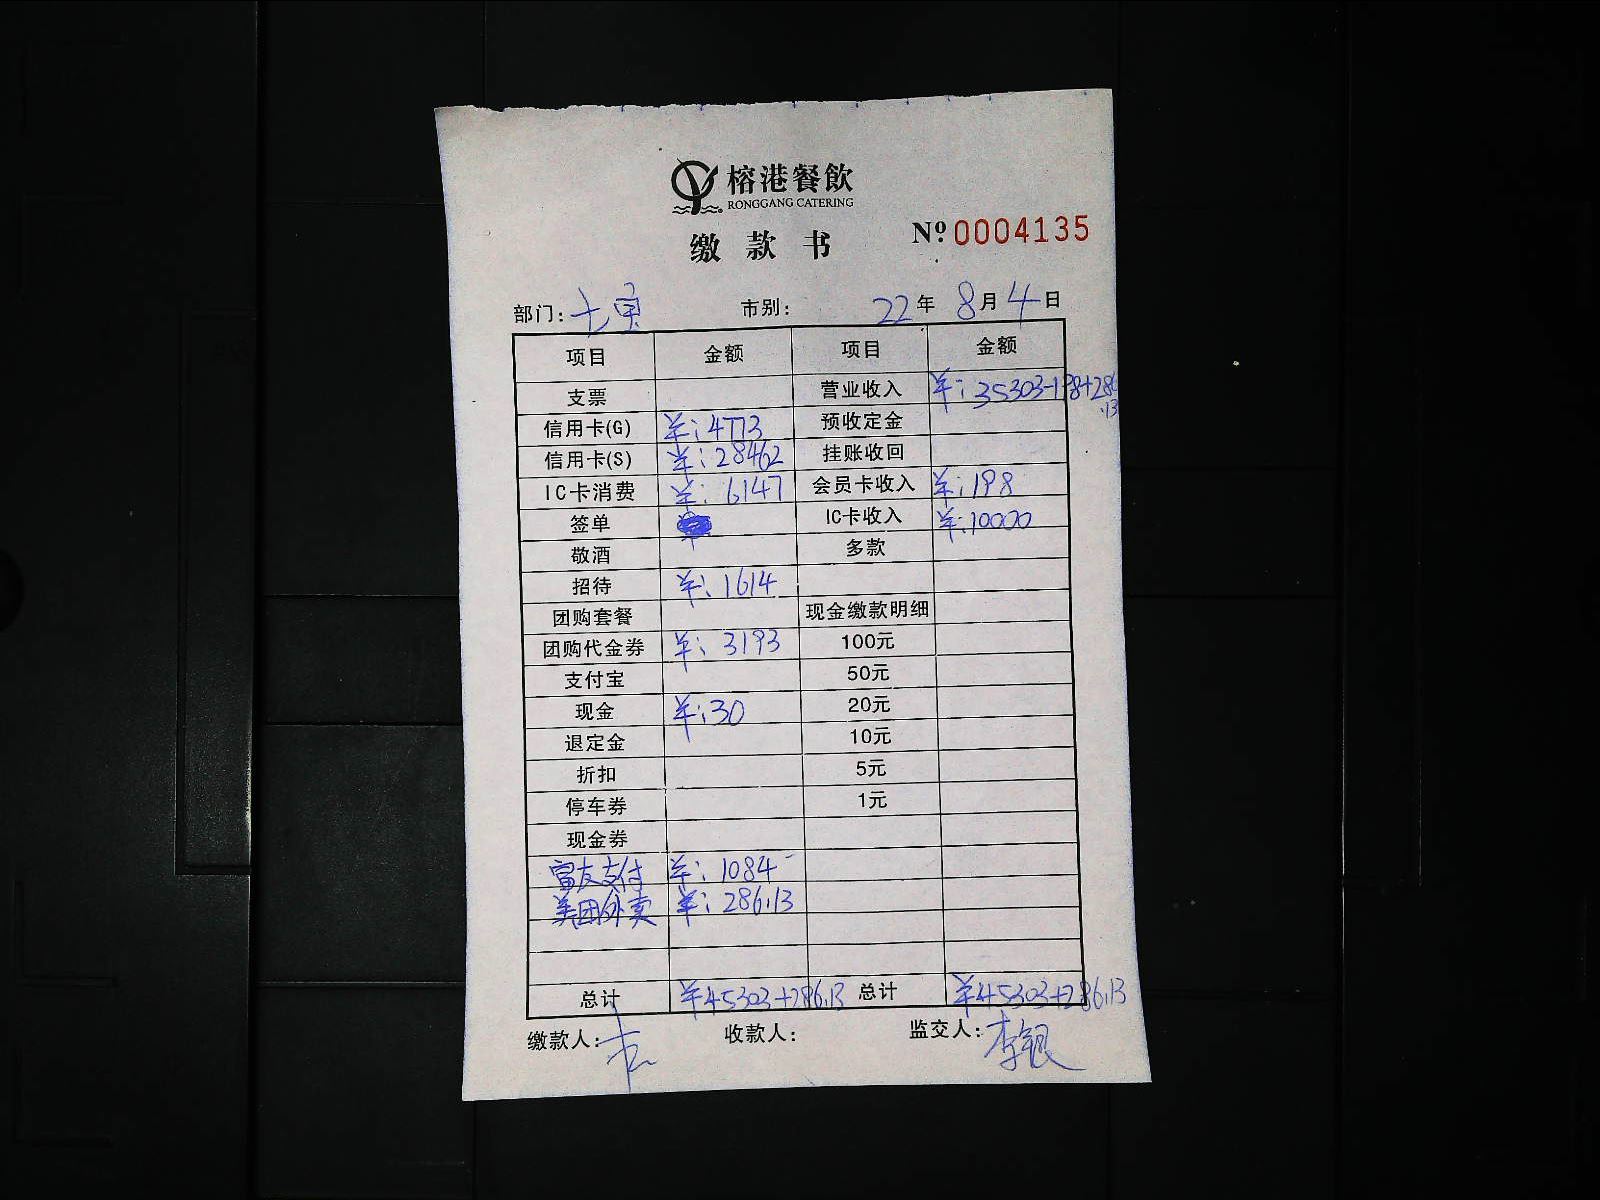 榕港餐飲
RONGGANG CATERING
缴款书
№ 0004135
部门: 市别: 22年 8月 4日
项目 金额 项目 金额
支票 营业收入 ¥:35303-198+286.13
信用卡(G) ¥:4773 预收定金
信用卡(S) ¥:28462 挂账收回
IC卡消费 ¥:6147 会员卡收入 ¥:198
签单 IC卡收入 ¥:10000
敬酒 多款
招待 ¥:1614
团购套餐 现金缴款明细
团购代金券 ¥:3193 100元
支付宝 50元
现金 ¥:30 20元
退定金 10元
折扣 5元
停车券 1元
现金券
富友支付 ¥:1084
美团外卖 ¥:286.13
总计 ¥45303+286.13 总计 ¥45303+286.13
缴款人: 收款人: 监交人:李银